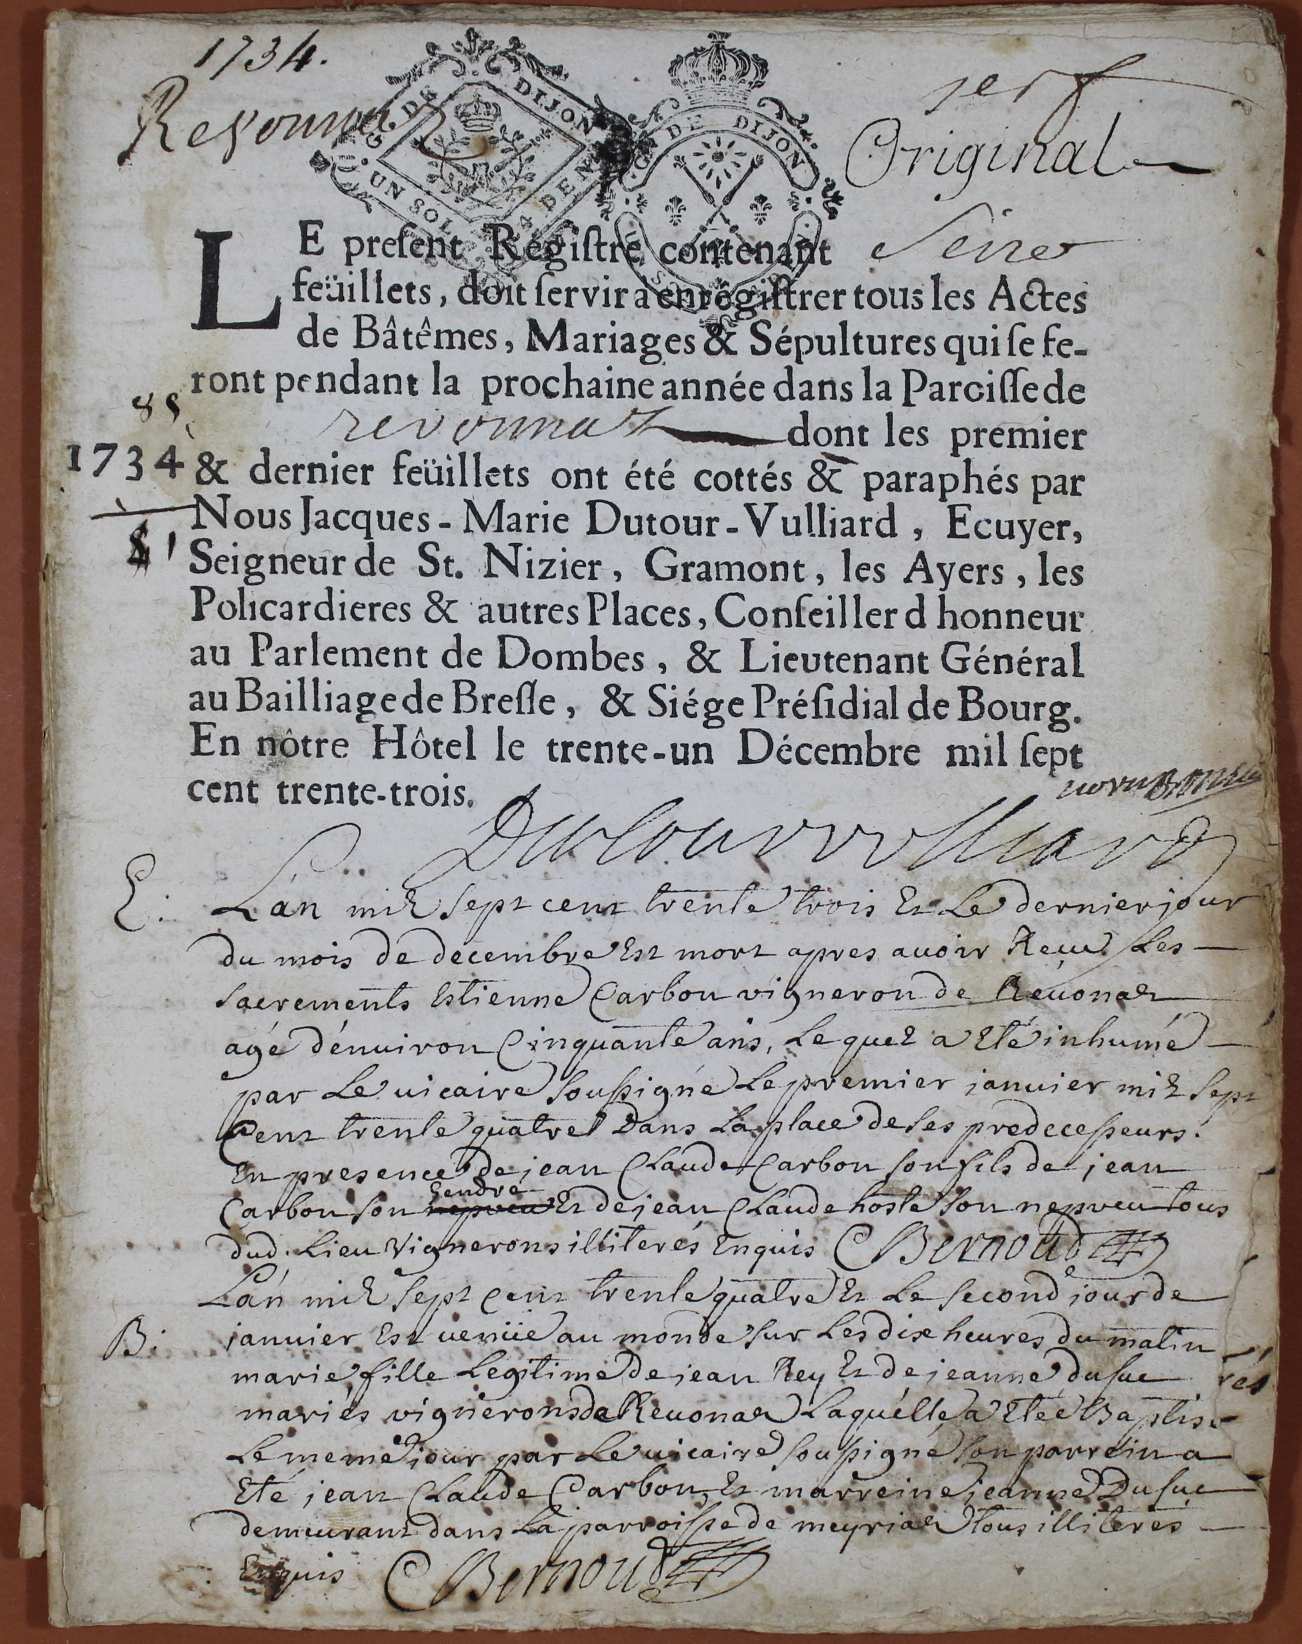 1734.
Revonna
serf
Original
G. DE DIJON
UN SOL 4 DEN
G. DE DIJON
LE preſent Régiſtre contenant Seize
feüillets, doit ſervir a enrégiſtrer tous les Actes
de Bâtêmes, Mariages & Sépultures qui ſe fe-
ront pendant la prochaine année dans la Paroiſſe de
revonnaz dont les premier
1734 & dernier feüillets ont été cottés & paraphés par
Nous Jacques-Marie Dutour-Vulliard, Ecuyer,
Seigneur de St. Nizier, Gramont, les Ayers, les
Policardieres & autres Places, Conſeiller d honneur
au Parlement de Dombes, & Lieutenant Général
au Bailliage de Breſſe, & Siége Préſidial de Bourg.
En nôtre Hôtel le trente-un Décembre mil ſept
cent trente-trois.
Dutourvulliard
E. L'an mil sept cent trente trois Et Le dernier jour
du mois de decembre Est mort apres avoir Reçu Les
sacrements Estienne Carbon vigneron de Reuonaz
agé d'énuiron Cinquante ans, Lequel a Eté inhumé
par Le vicaire soussigné Le premier januier mil sept
Cent trente quatre Dans La place de ses predecesseurs.
En presence de jean Claude Carbon son fils de jean
Gendre
Carbon son nepveu Et de jean Claude hoste son nepveu tous
dud. Lieu Vignerons illiterés Enquis C Bernoud
L'an mil sept cent trente quatre Et Le second jour de
B: januier Est venüe au monde sur Les dix heures du matin
marie fille Legitime de jean Rey Et de jeanne dusuc
mariés vignerons de Reuonaz Laquélle a Eteé Baptisé
Le meme jour par Le vicaire soussigné son parrein a
Eté jean Claude Carbon Et marreine jeanne Dusuc
demeurant dans La parroisse de meyriaz tous illiterés
Enquis C Bernoud